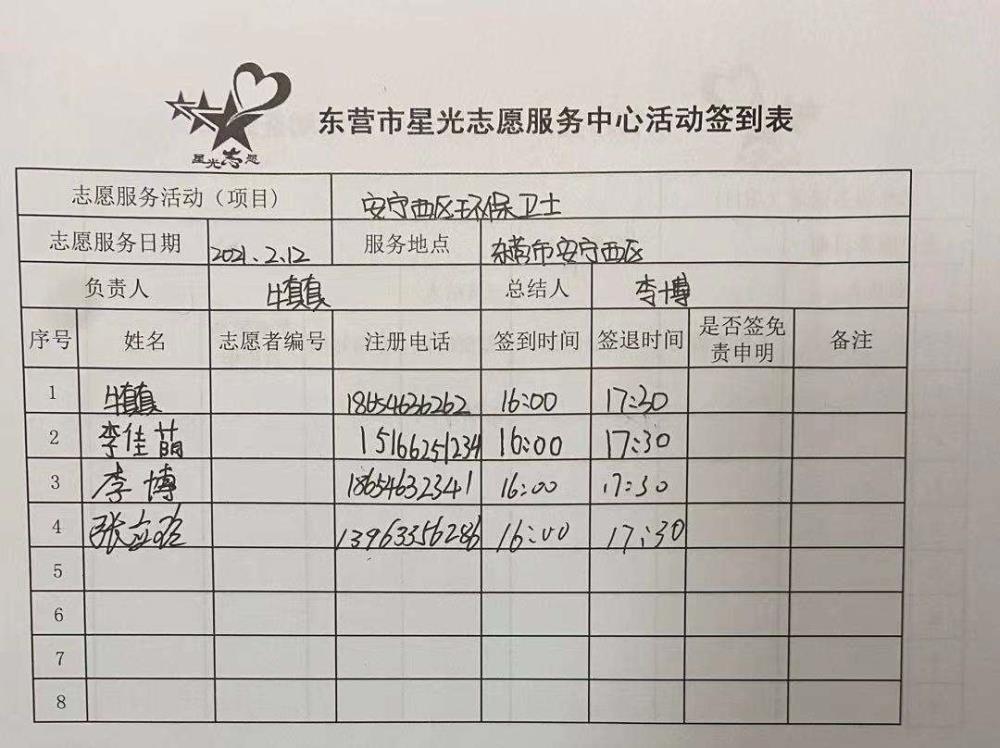 星光志愿
东营市星光志愿服务中心活动签到表
志愿服务活动（项目） 安宁西区环保卫士
志愿服务日期 2021.2.12 服务地点 东营市安宁西区
负责人 牛真真 总结人 李博
序号 姓名 志愿者编号 注册电话 签到时间 签退时间 是否签免责申明 备注
1 牛真真 18654636262 16:00 17:30
2 李佳苗 15166251234 16:00 17:30
3 李博 18654632341 16:00 17:30
4 张立 13963356286 16:00 17:30
5
6
7
8